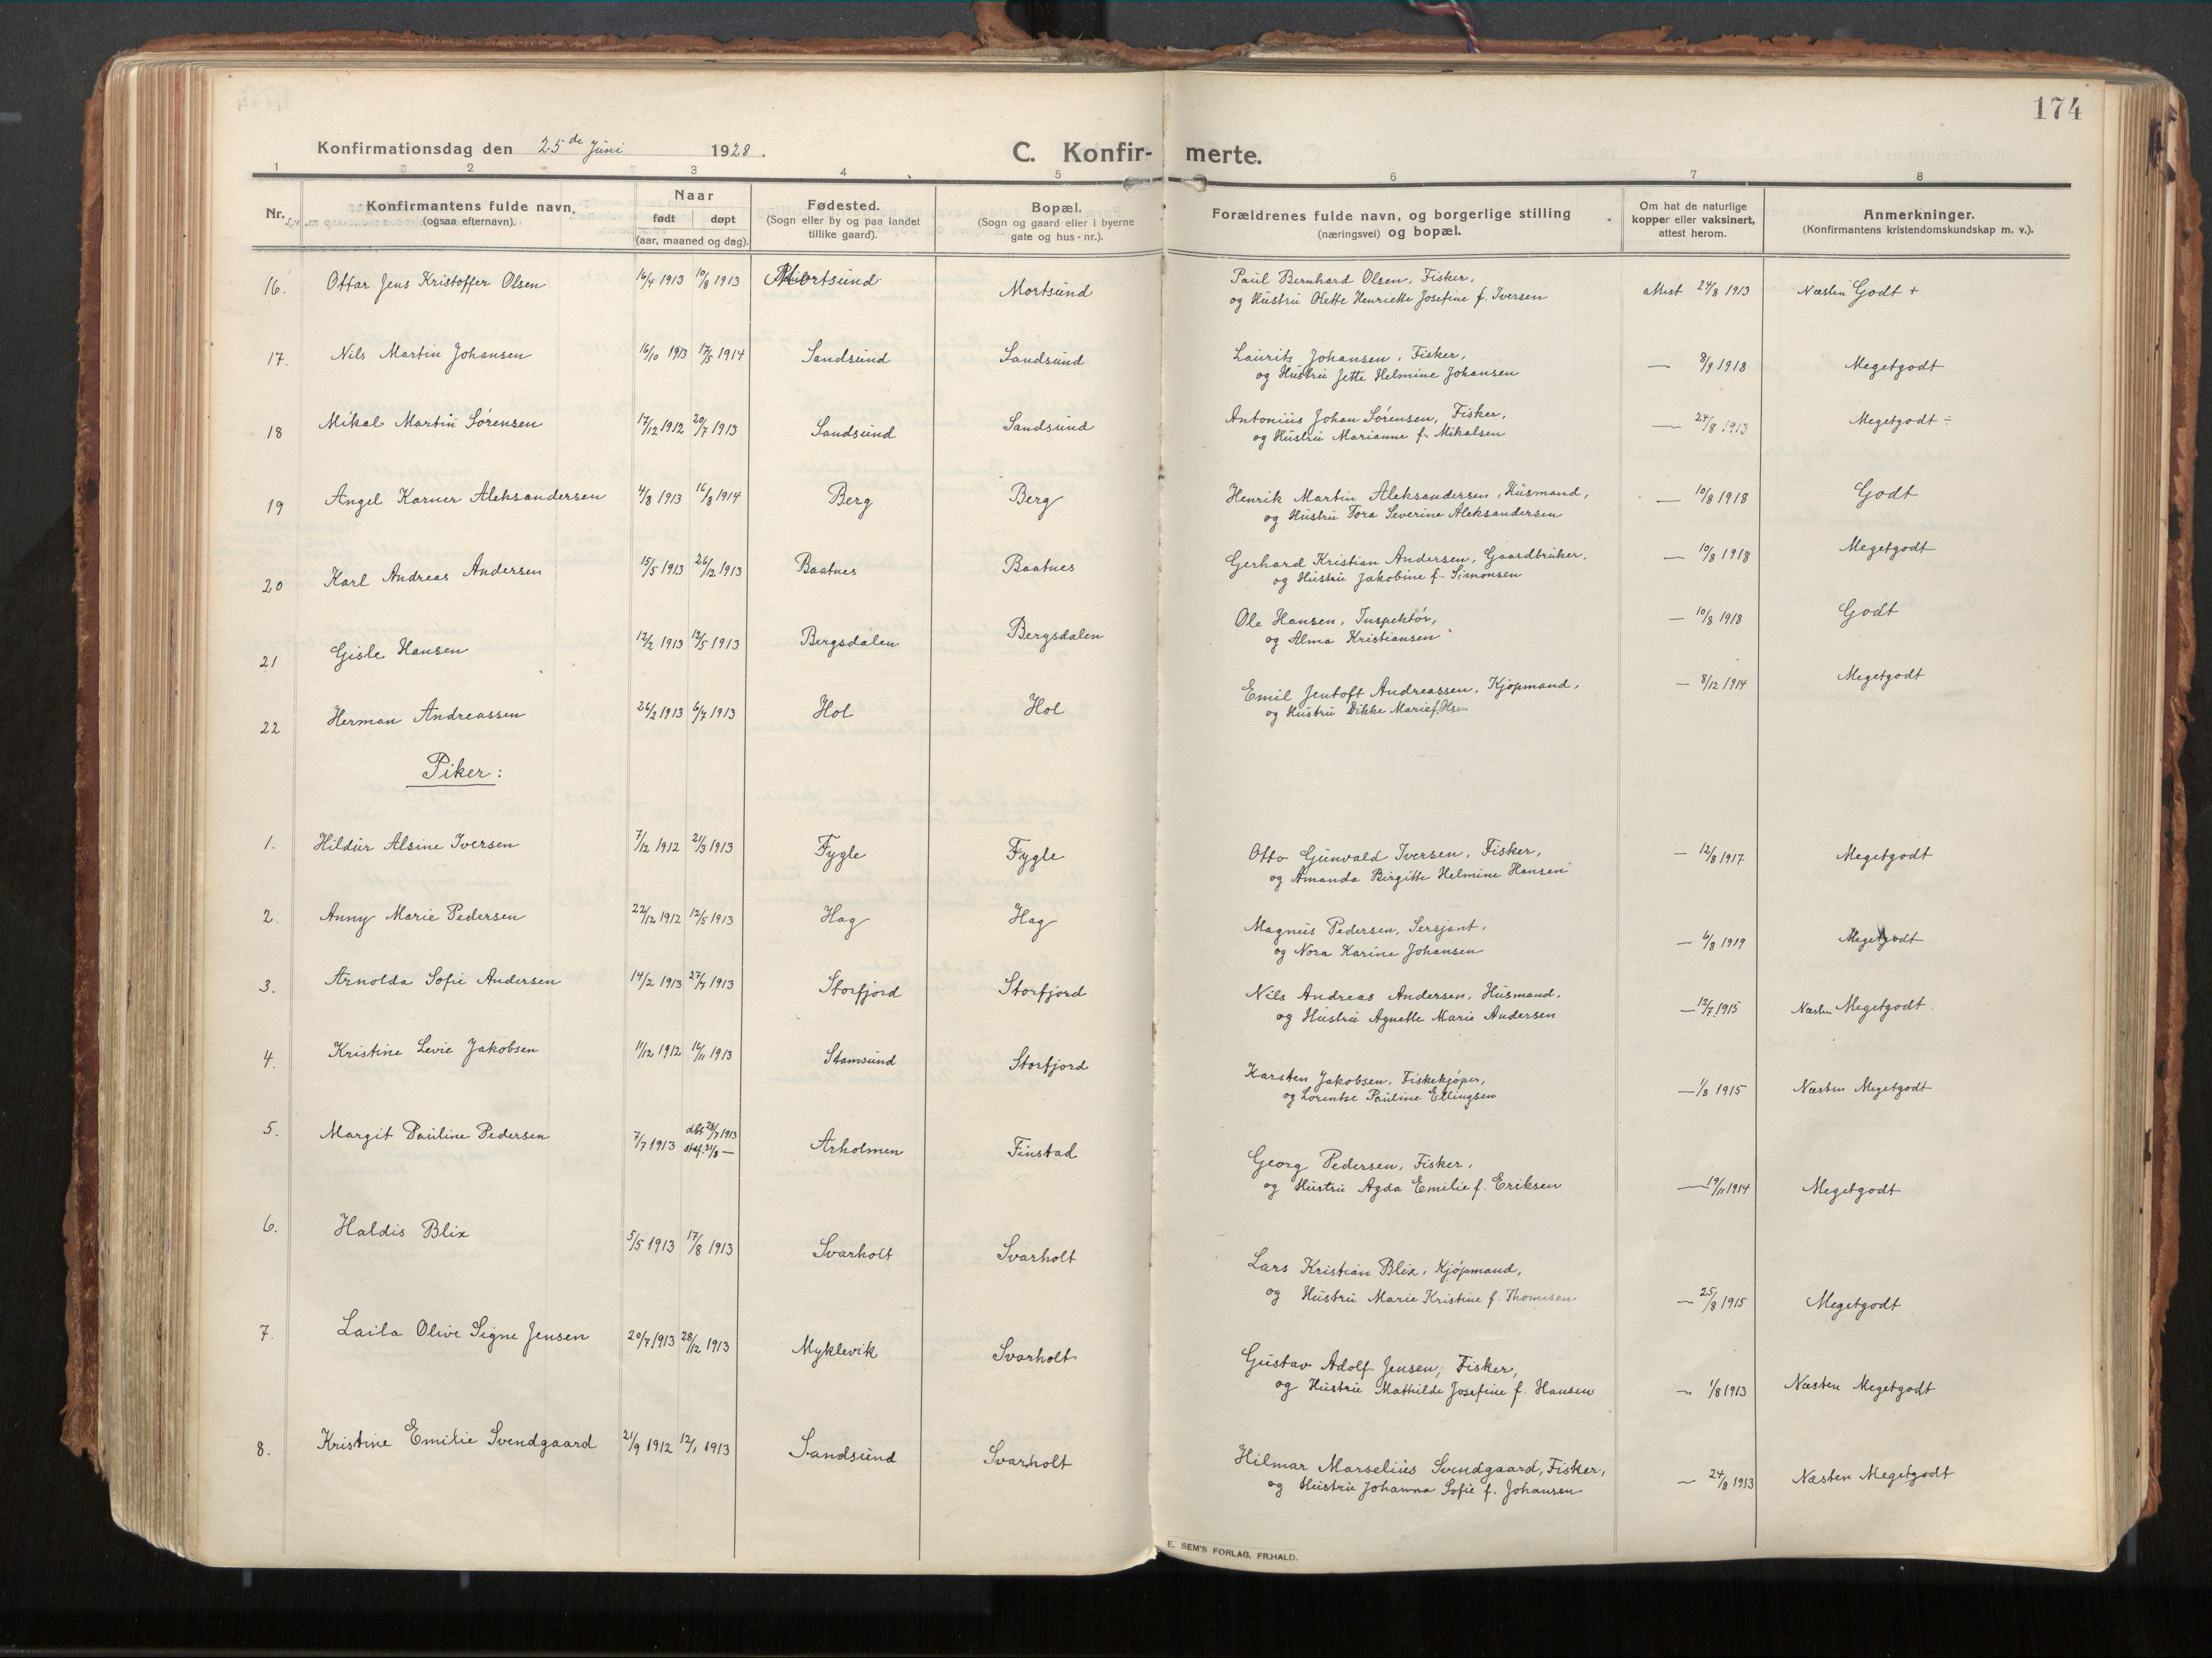 174
Konfirmationsdag den 25de Juni 1928.
C. Konfir- merte.
1 2 3 4 5 6 7 8
Nr. Konfirmantens fulde navn. (ogsaa efternavn). Naar født døpt (aar, maaned og dag). Fødested. (Sogn eller by og paa landet tillike gaard). Bopæl. (Sogn og gaard eller i byerne gate og hus-nr.). Forældrenes fulde navn, og borgerlige stilling (næringsvei) og bopæl. Om hat de naturlige kopper eller vaksinert, attest herom. Anmerkninger. (Konfirmantens kristendomskundskap m. v.).
16. Ottar Jens Kristoffer Olsen 16/4 1913 10/8 1913 Mortsund Mortsund Paul Bernhard Olsen, Fisker, attest 24/8 1913 Næsten Godt +
og Hustru Olette Henriette Josefine f. Iversen
17. Nils Martin Johansen 16/10 1913 17/5 1914 Sandsund Sandsund Laurits Johansen, Fisker, — 8/9 1918 Megetgodt
og Hustru Jette Helmine Johansen
18 Mikal Martin Sørensen 17/12 1912 20/7 1913 Sandsund Sandsund Antonius Johan Sørensen, Fisker, — 24/8 1913 Megetgodt ÷
og Hustru Marianne f. Mikalsen
19 Angel Karner Aleksandersen 4/8 1913 16/8 1914 Berg Berg Henrik Martin Aleksandersen, Husmand, — 10/8 1918 Godt
og Hustru Tora Severine Aleksandersen
20 Karl Andreas Andersen 15/5 1913 26/12 1913 Baatnes Baatnes Gerhard Kristian Andersen, Gaardbruker, — 10/8 1918 Megetgodt
og Hustru Jakobine f. Simonsen
21 Gisle Hansen 12/2 1913 12/5 1913 Bergsdalen Bergsdalen Ole Hansen, Inspektør, — 10/8 1918 Godt
og Alma Kristiansen
22 Herman Andreassen 26/2 1913 6/7 1913 Hol Hol Emil Jentoft Andreassen, Kjøpmand, — 8/12 1914 Megetgodt
og Hustru Dikke Marie f. Olsen
Piker:
1. Hildur Alsine Iversen 7/12 1912 21/3 1913 Fygle Fygle Otto Gunvald Iversen, Fisker, — 12/8 1917 Megetgodt
og Amanda Birgitte Helmine Hansen
2. Anny Marie Pedersen 22/12 1912 12/5 1913 Hag Hag Magnus Pedersen, Sersjant, — 6/8 1919 Megetgodt
og Nora Karine Johansen
3. Arnolda Sofie Andersen 14/2 1913 27/7 1913 Storfjord Storfjord Nils Andreas Andersen, Husmand, — 12/7 1915 Næsten Megetgodt.
og Hustru Agnette Marie Andersen
4. Kristine Levie Jakobsen 11/12 1912 16/11 1913 Stamsund Storfjord Karsten Jakobsen, Fiskekjøper, — 1/8 1915 Næsten Megetgodt
og Lorentse Pauline Ellingsen
5. Margit Pauline Pedersen 7/7 1913 dbt 28/7 1913 Arholmen Finstad Georg Pedersen, Fisker, — 19/11 1914 Megetgodt
stdf. 31/8 — og Hustru Agda Emilie f. Eriksen
6. Haldis Blix 5/5 1913 17/8 1913 Svarholt Svarholt Lars Kristian Blix, Kjøpmand, — 25/8 1915 Megetgodt
og Hustru Marie Kristine f. Thomesen
7. Laila Olive Signe Jensen 20/7 1913 28/12 1913 Myklevik Svarholt Gustav Adolf Jensen, Fisker, — 1/8 1913 Næsten Megetgodt
og Hustru Mathilde Josefine f. Hansen
8. Kristine Emilie Svendgaard 21/9 1912 12/1 1913 Sandsund Svarholt Hilmar Marselius Svendgaard, Fisker, — 24/8 1913 Næsten Megetgodt
og Hustru Johanna Sofie f. Johansen
E. SEM'S FORLAG, FR.HALD.